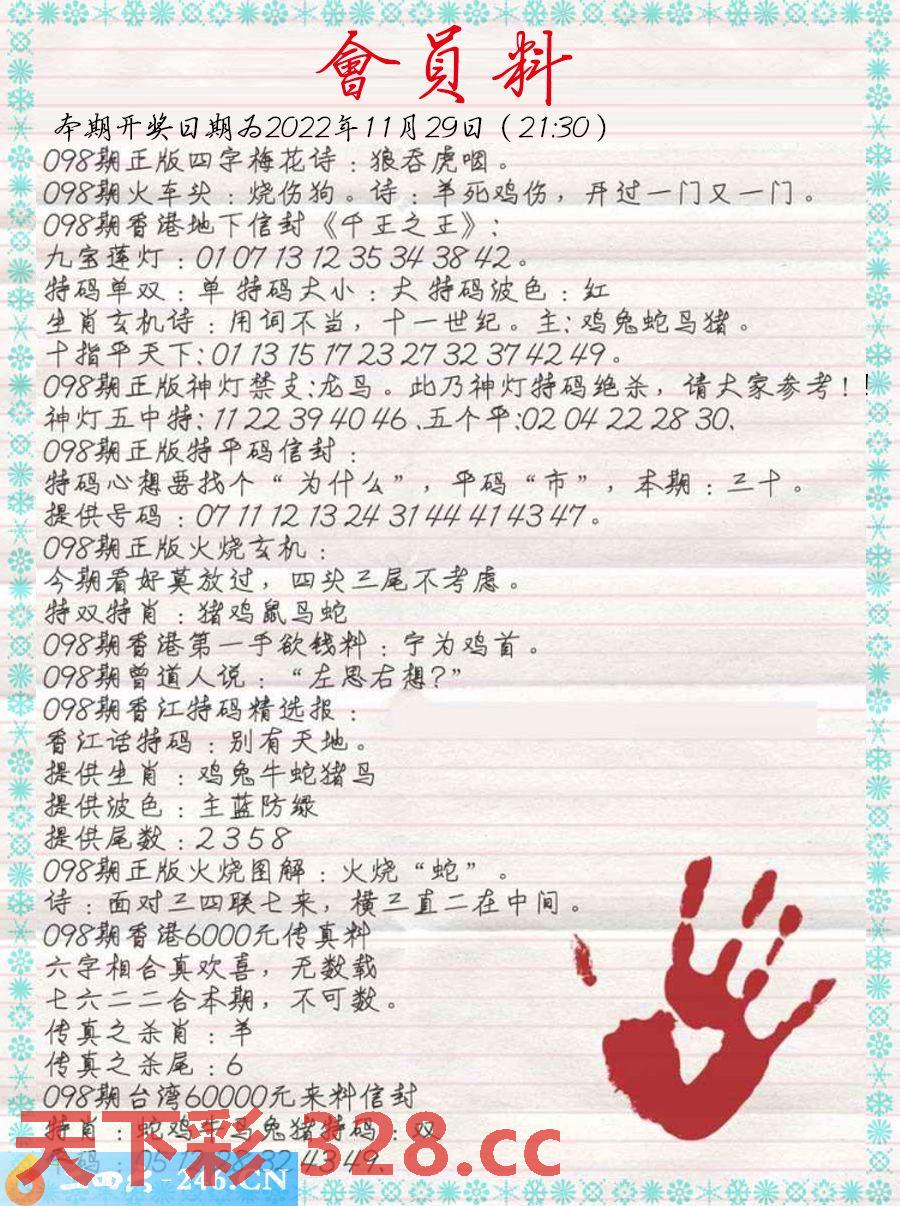 會員料
本期开奖日期为2022年11月29日（21:30）
098期正版四字梅花诗：狼吞虎咽。
098期火车头：烧伤狗。诗：羊死鸡伤，开过一门又一门。
098期香港地下信封《千王之王》：
九宝莲灯：01 07 13 12 35 34 38 42。
特码单双：单 特码大小：大 特码波色：红
生肖玄机诗：用词不当，十一世纪。主：鸡兔蛇鸟猪。
十指平天下：01 13 15 17 23 27 32 37 42 49。
098期正版神灯禁支：龙鸟。此乃神灯特码绝杀，请大家参考！！
神灯五中特：11 22 39 40 46、五个平：02 04 22 28 30、
098期正版特平码信封：
特码心想要找个“为什么”，平码“市”，本期：三十。
提供号码：07 11 12 13 24 31 44 41 43 47。
098期正版火烧玄机：
今期看好莫放过，四头三尾不考虑。
特双特肖：猪鸡鼠鸟蛇
098期香港第一手欲钱料：宁为鸡首。
098期曾道人说：“左思右想？”
098期香江特码精选报：
香江话特码：别有天地。
提供生肖：鸡兔牛蛇猪鸟
提供波色：主蓝防绿
提供尾数：2 3 5 8
098期正版火烧图解：火烧“蛇”。
诗：面对三四联七来，横三直二在中间。
098期香港6000元传真料
六字相合真欢喜，无数载
七六二二合本期，不可数。
传真之杀肖：羊
传真之杀尾：6
098期台湾60000元来料信封
特肖：蛇鸡牛鸟兔猪特码：双
43 49、
天下彩 328.cc
-246.CN